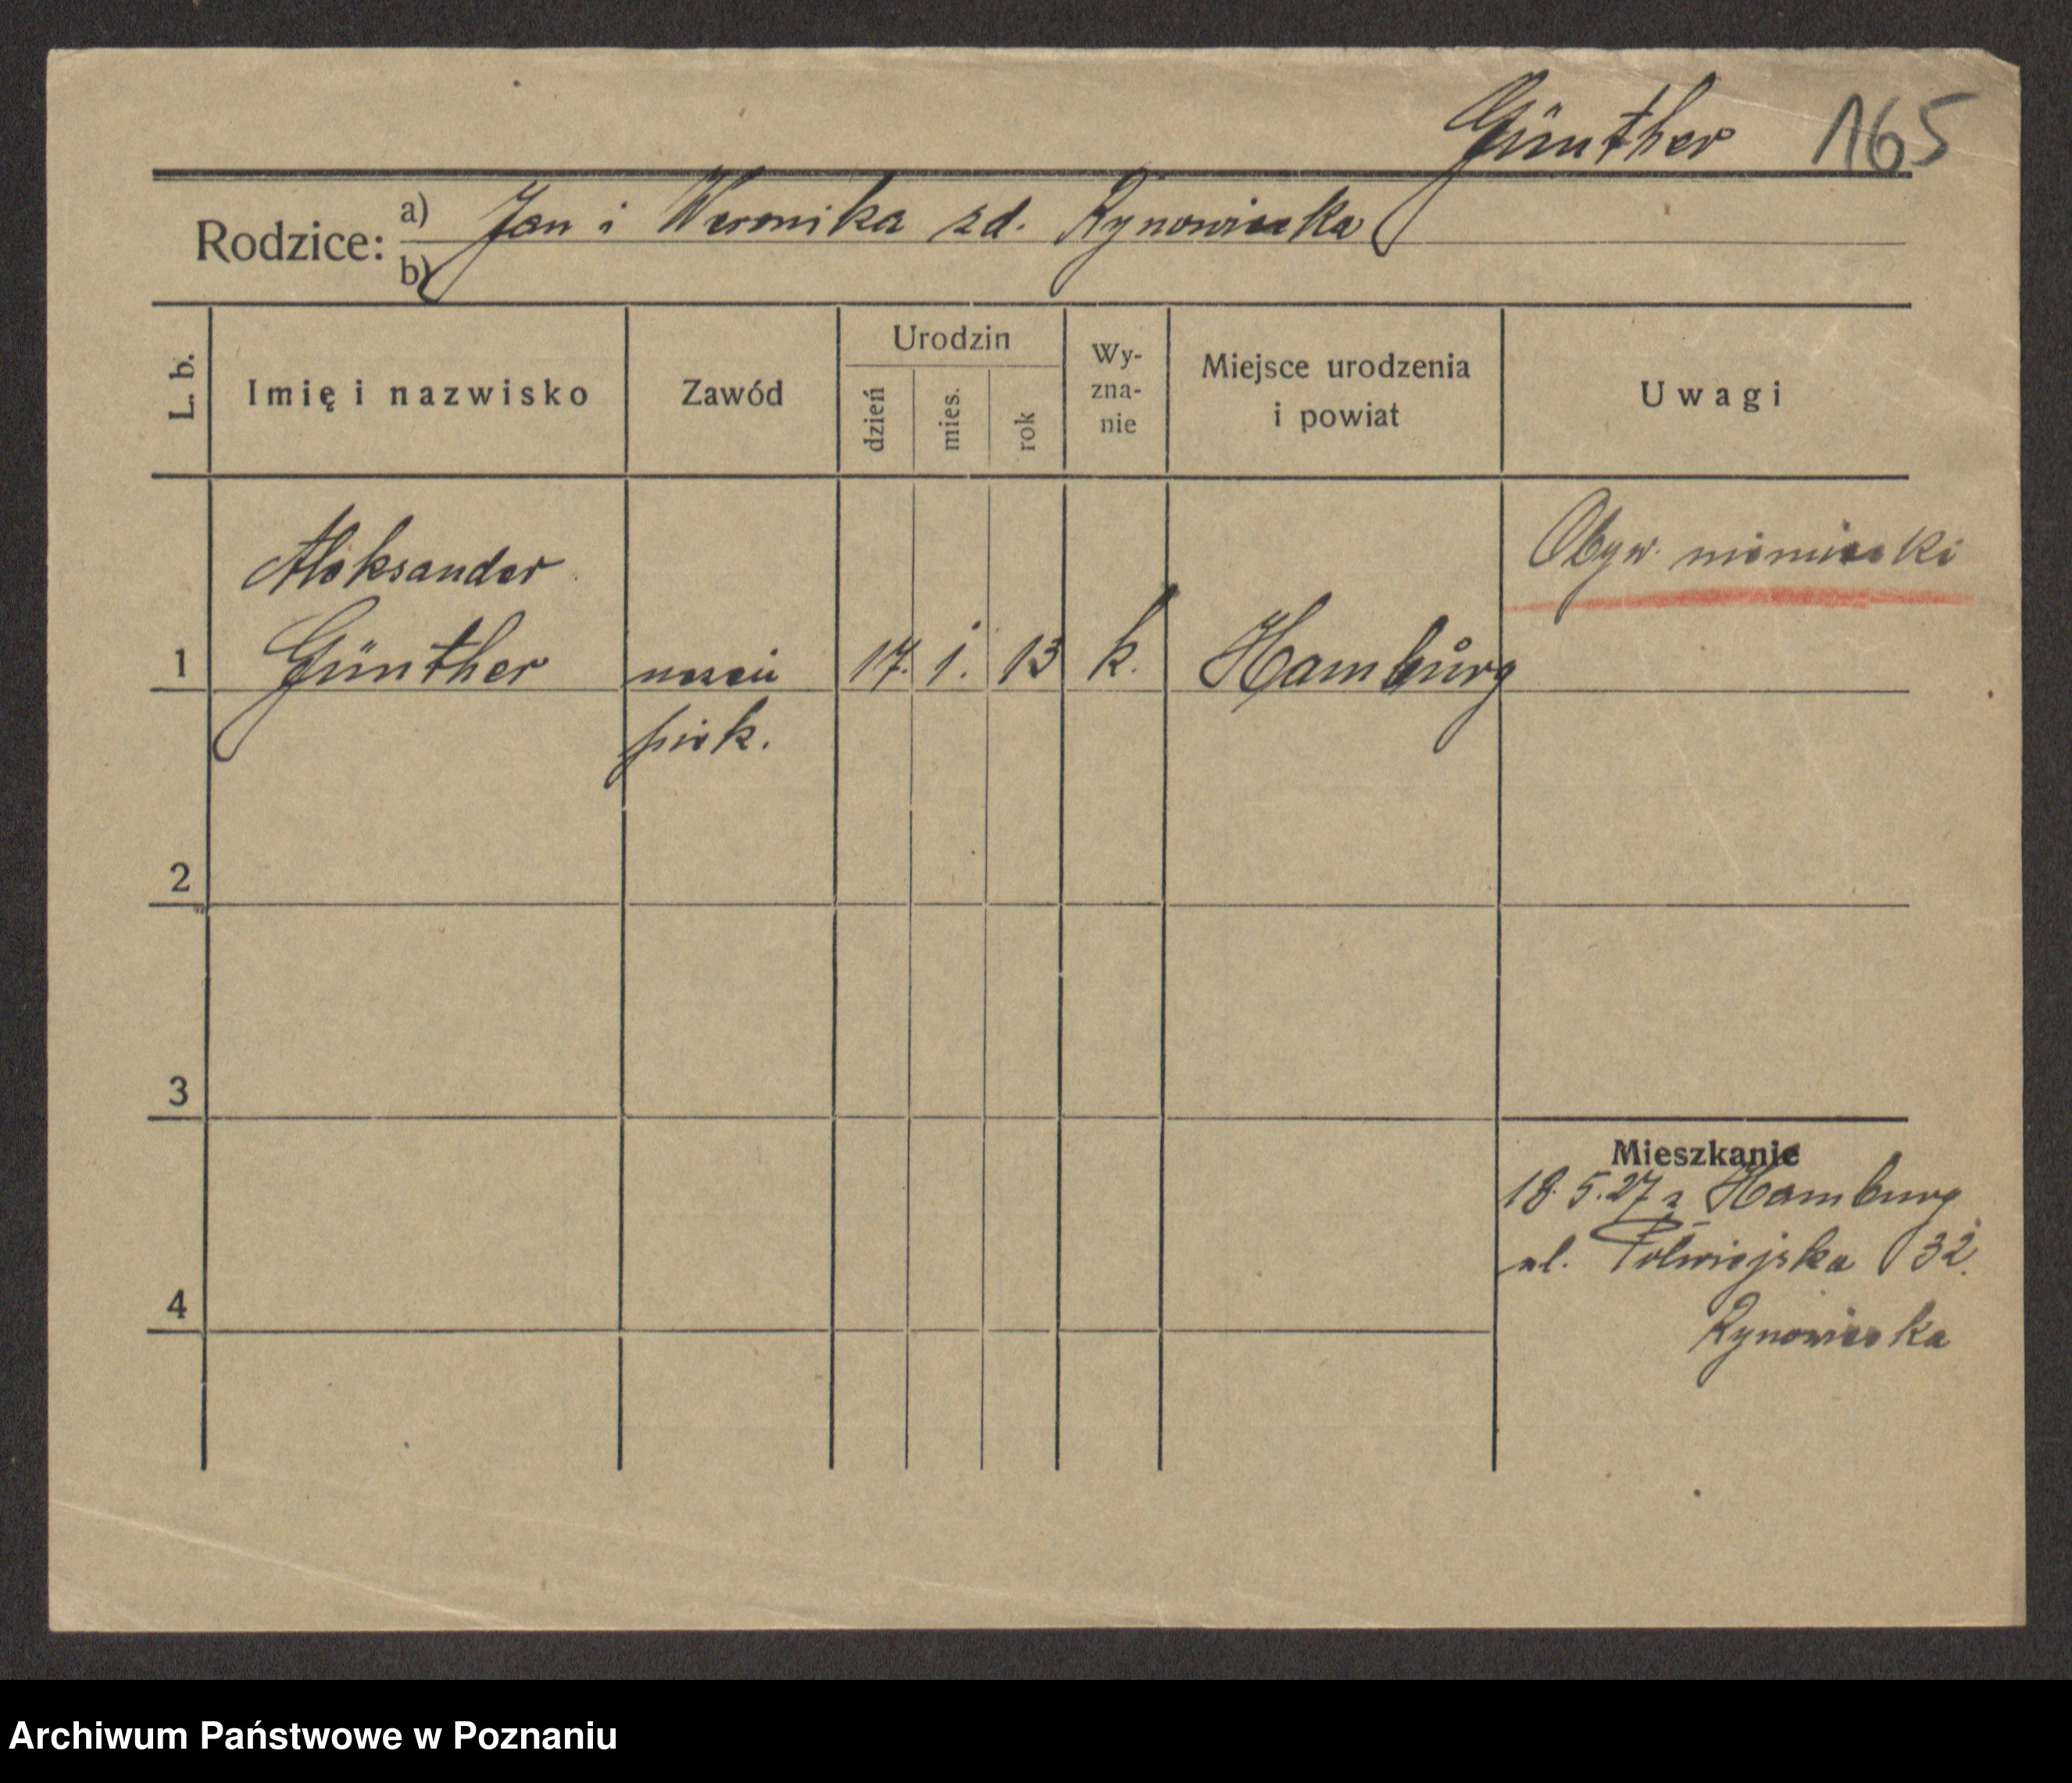 Günther 165
Rodzice: a) Jan i Weronika zd. Rynowiecka
b)
L. b.
Imię i nazwisko
Zawód
Urodzin
dzień
mies.
rok
Wy-
zna-
nie
Miejsce urodzenia
i powiat
Uwagi
Aleksander
Obyw. niemiecki
1 Günther uczeń 17. 1. 13 k. Hamburg
piek.
2
3
Mieszkanie
18. 5. 27 z Hamburg
ul. Półwiejska 32.
4
Rynowiecka
Archiwum Państwowe w Poznaniu